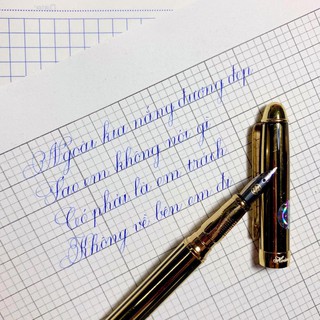 Ngoài kia nắng đương đẹp
Sao em không nói gì
Có phải là em trách
Không về bên em đi